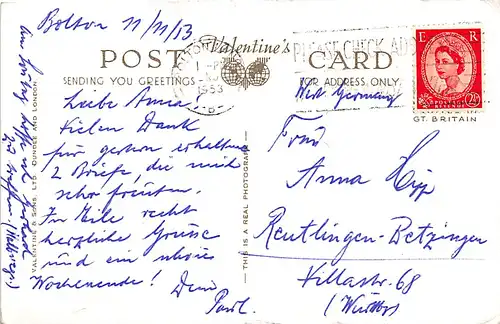 Bolton 11/11/53
Valentine's
POST CARD
SENDING YOU GREETINGS
FOR ADDRESS ONLY
PLEASE CHECK
1953
E R
POSTAGE
2½
GT. BRITAIN
West Germany
Liebe Anna!
Vielen Dank
für gestern erhaltene
2 Briefe, die mich
sehr freuten.
In Eile recht
herzliche Grüsse
und ein schönes
Wochenende! Dein
Paul.
Frau
Anna Hip
Reutlingen-Betzingen
Villastr. 68
(Württbg)
VALENTINE & SONS, LTD. DUNDEE AND LONDON
THIS IS A REAL PHOTOGRAPH